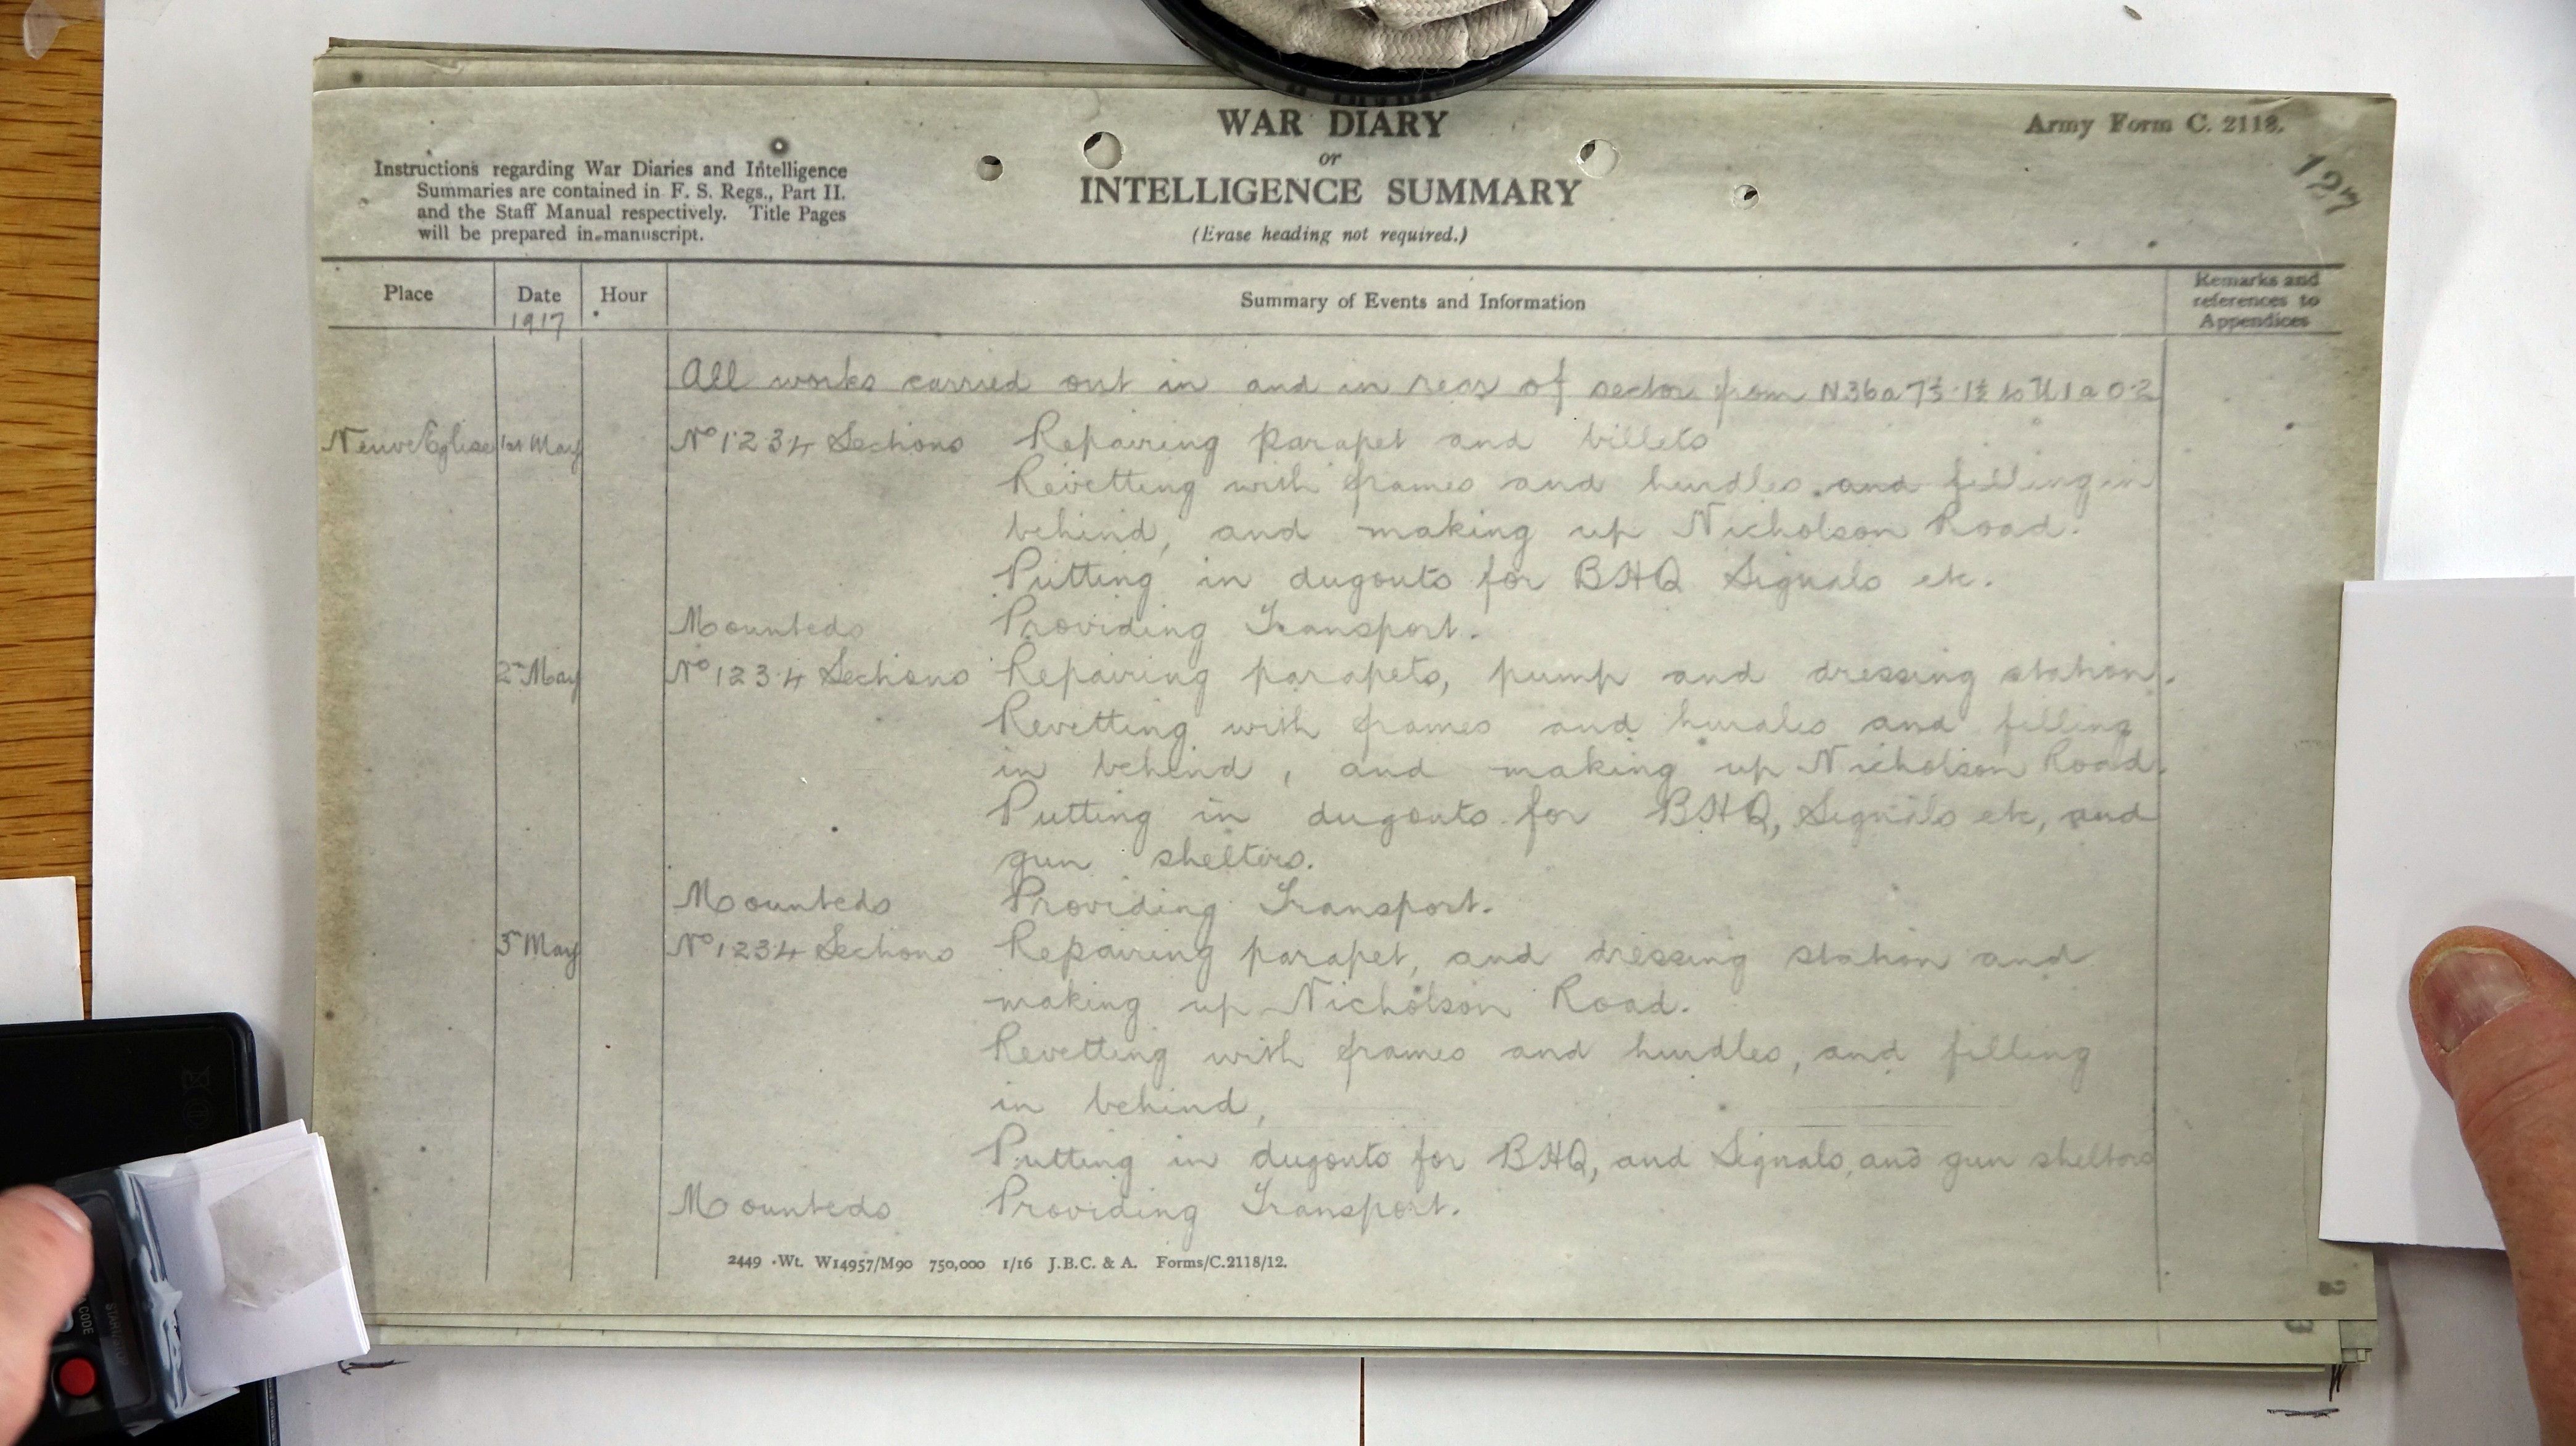 WAR DIARY
or
INTELLIGENCE SUMMARY
(Erase heading not required.)
Army Form C. 2118.
127
Instructions regarding War Diaries and Intelligence
Summaries are contained in F. S. Regs., Part II.
and the Staff Manual respectively. Title Pages
will be prepared in manuscript.
Place Date Hour Summary of Events and Information Remarks and references to Appendices
1917
All works carried out in and in rear of sector from N36a 7½·1½ to U1a 0·2
Neuve Eglise 1st May No 1·2·3·4 Sections Repairing parapet and billets
Revetting with frames and hurdles and filling in
behind, and making up Nicholson Road.
Putting in dugouts for BHQ Signals etc.
Mounteds Providing Transport.
2nd May No 1 2 3·4 Sections Repairing parapets, pump and dressing station.
Revetting with frames and hurdles and filling
in behind, and making up Nicholson Road.
Putting in dugouts for BHQ, Signals etc, and
gun shelters.
Mounteds Providing Transport.
3rd May No 1·2·3·4 Sections Repairing parapet, and dressing station and
making up Nicholson Road.
Revetting with frames and hurdles, and filling
in behind,
Putting in dugouts for BHQ, and Signals, and gun shelters
Mounteds Providing Transport.
2449 Wt. W14957/M90 750,000 1/16 J.B.C. & A. Forms/C.2118/12.
CODE